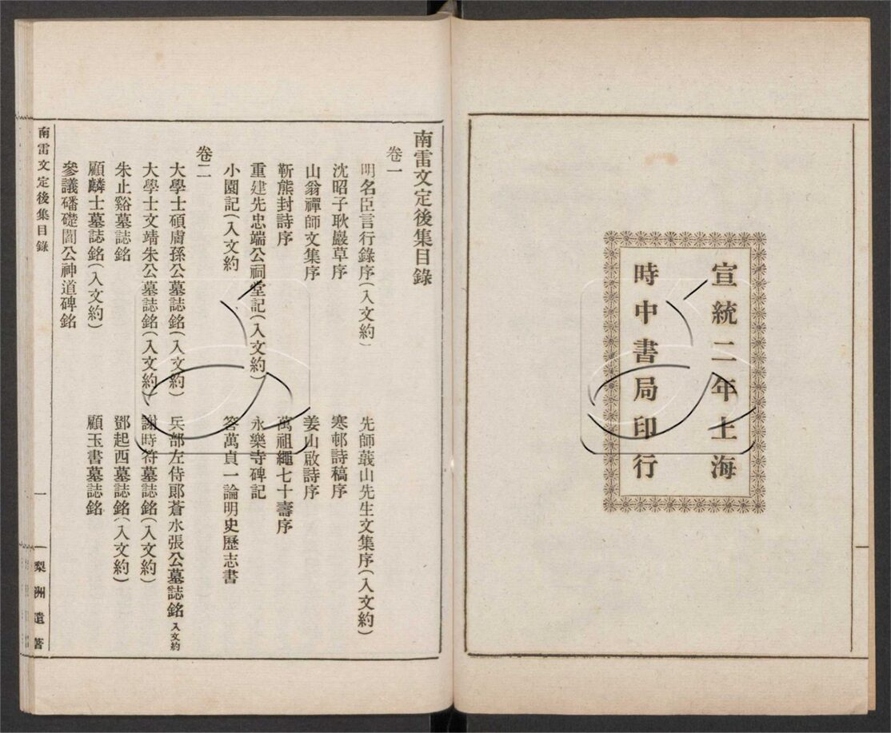 宣統二年上海
時中書局印行
南雷文定後集目錄
卷一
明名臣言行錄序(入文約) 先師蕺山先生文集序(入文約)
沈昭子耿巖草序 寒邨詩稿序
山翁禪師文集序 姜山啟詩序
靳熊封詩序 萬祖繩七十壽序
重建先忠端公祠堂記(入文約) 永樂寺碑記
小園記(入文約 答萬貞一論明史歷志書
卷二
大學士碩膚孫公墓誌銘(入文約) 兵部左侍郎蒼水張公墓誌銘入文約
大學士文靖朱公墓誌銘(入文約) 謝時符墓誌銘(入文約)
朱止谿墓誌銘 鄧起西墓誌銘(入文約)
顧麟士墓誌銘(入文約) 顧玉書墓誌銘
參議磻礎閻公神道碑銘
南雷文定後集目錄 一 梨洲遺著